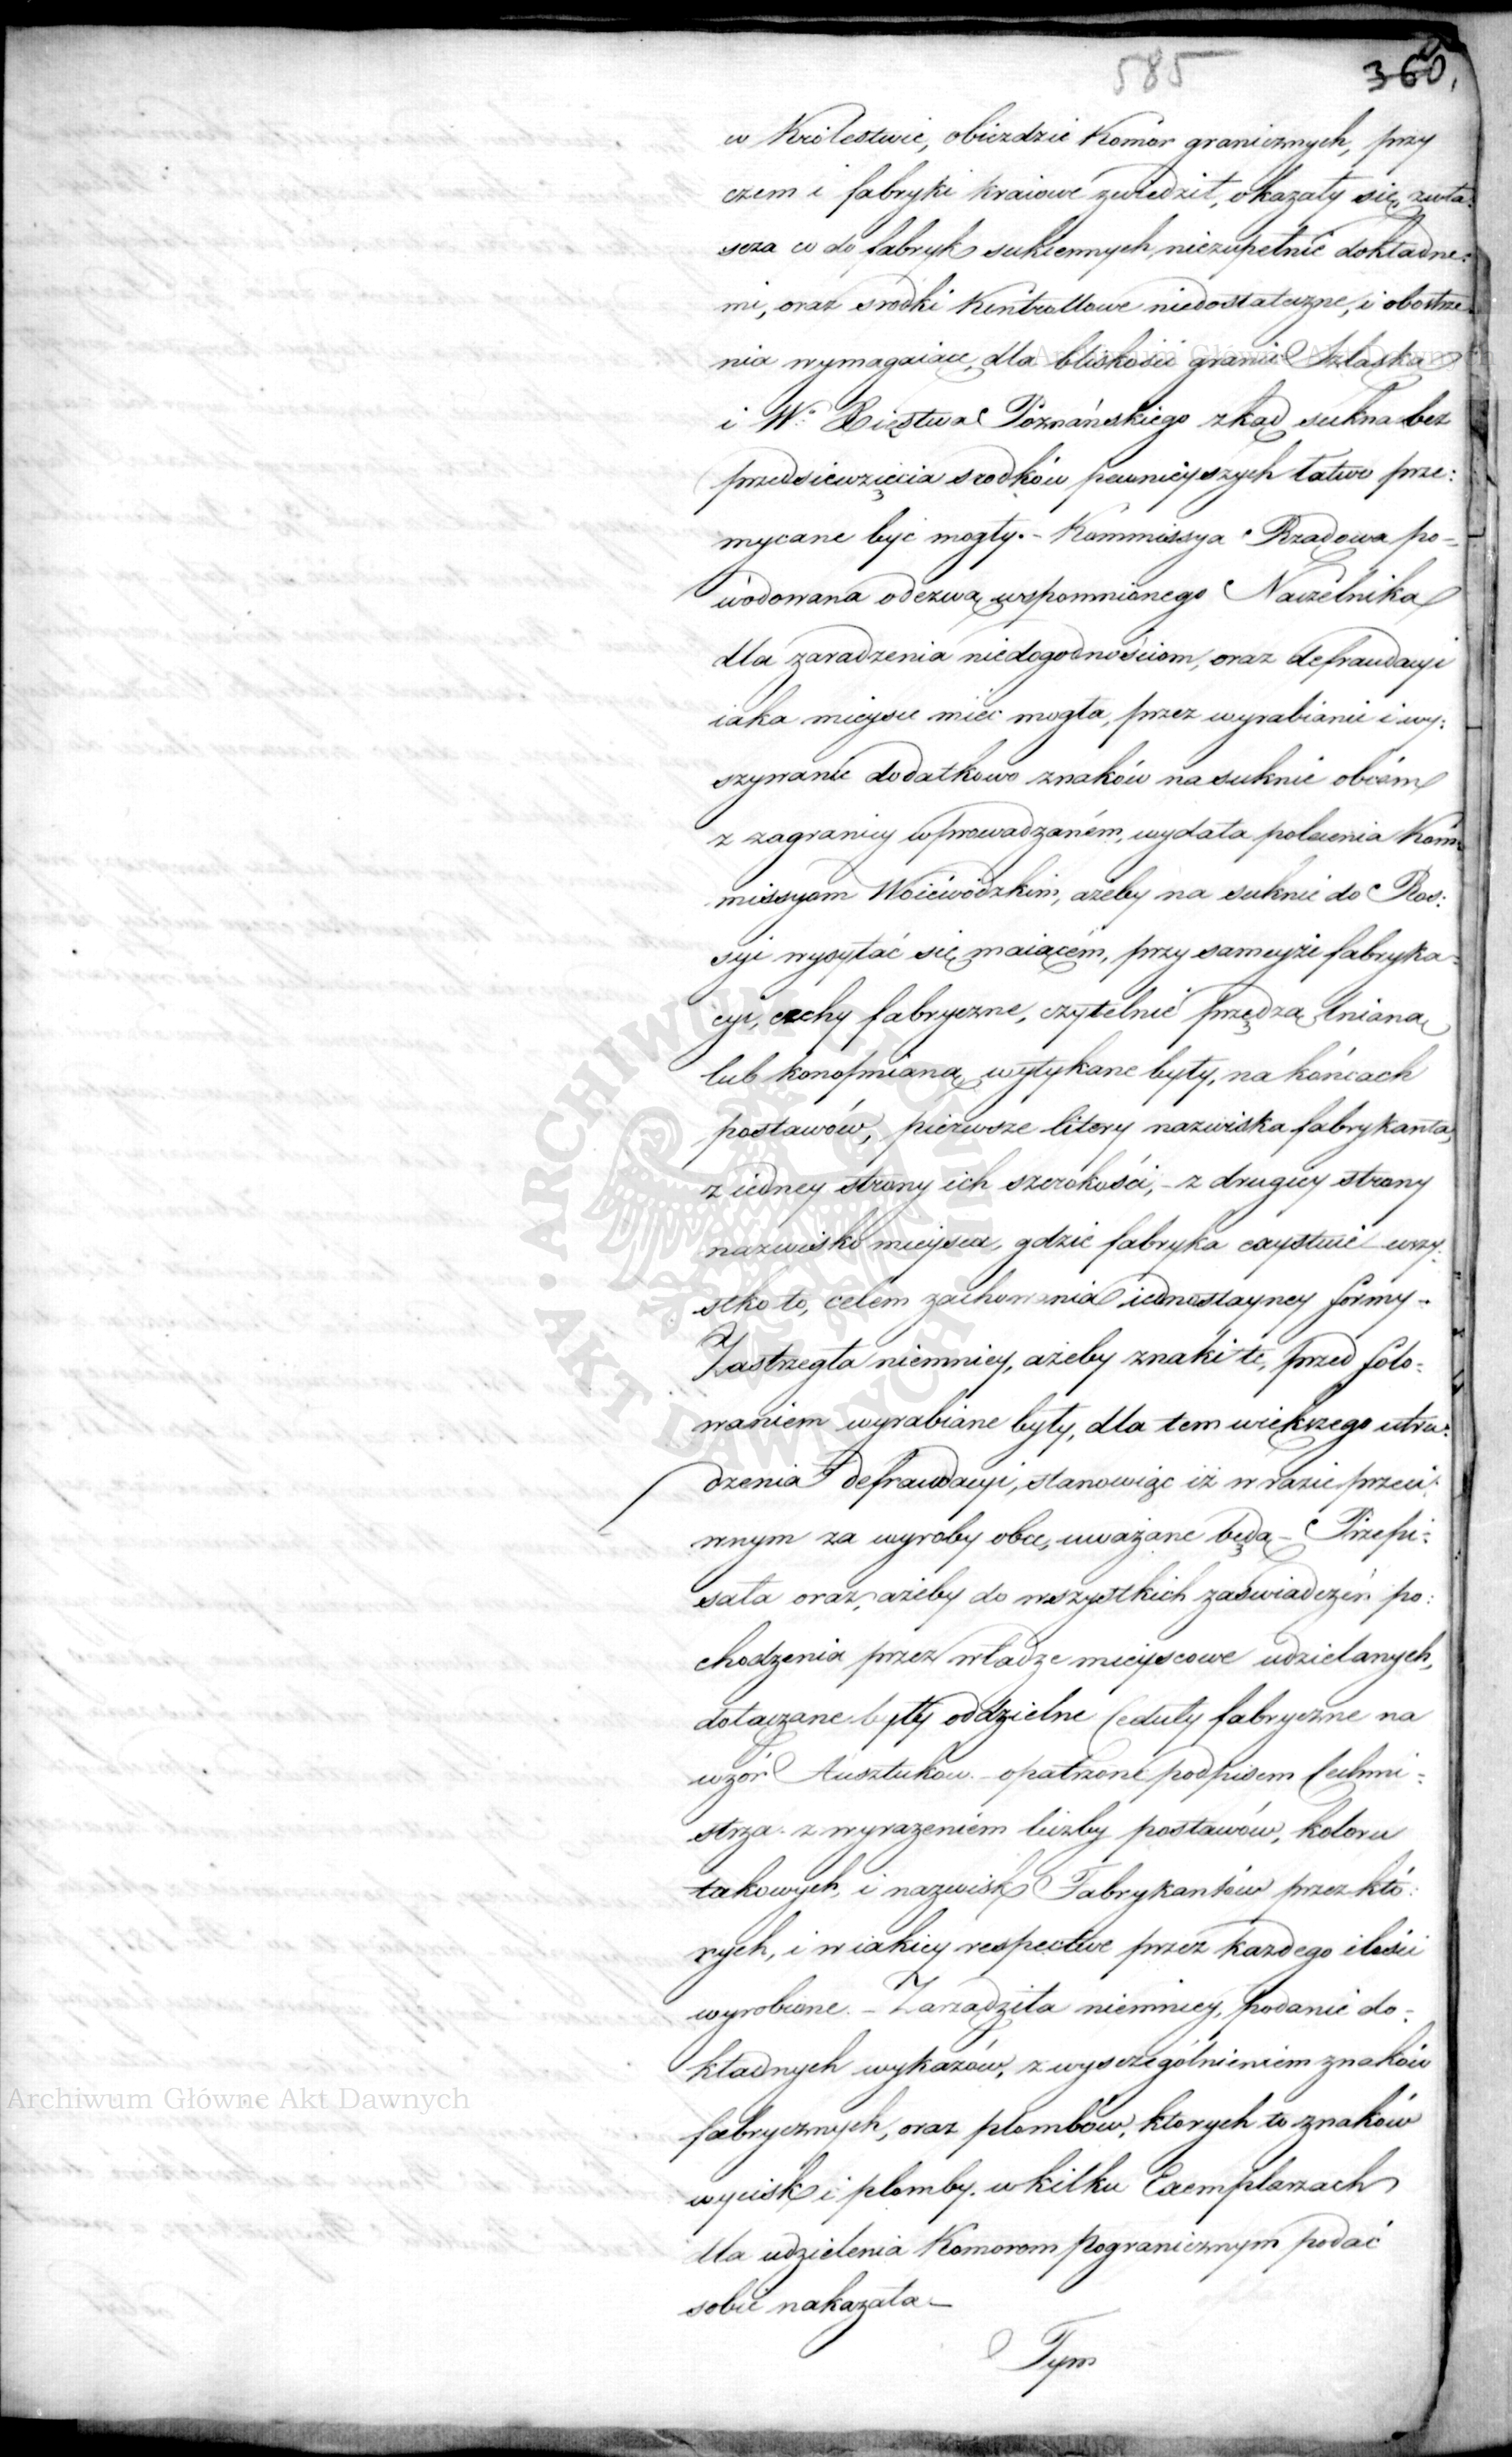 585
360.
w Królestwie, obieździe Komór granicznych, przy
czem i fabryki kraiowe zwiedził, okazały się, zwła:
scza co do fabryk sukiennych, niezupełnie dokładne:
mi, oraz srodki Kontrollowe niedostateczne, i obostrze
nia wymagaiące, dla bliskości granic Szląska
i W. Xięstwa Poznańskiego zkąd sukna bez
przedsiewzięcia srodków pewnieyszych łatwo prze:
mycane być mogły. – Kommissya Rządowa po–
wodowana odezwą wspomnionego Naczelnika
dla zaradzenia niedogodnościom, oraz defraudacyi
iaka mieysce mieć mogła, przez wyrabianie i wy:
szywanie dodatkowo znaków na suknie obcém
z zagranicy wprowadzaném, wydała polecenia Kom
missyom Woiewódzkim, ażeby na suknie do Ros:
syi wysyłać się maiącém, przy sameyże fabryka:
cyi, cechy fabryczne, czytelnie przędzą lnianą
lub konopnianą wytykane były, na końcach
postawów, pierwsze litery nazwiska fabrykanta,
z iedney strony ich szerokości, – z drugiey strony
nazwisko mieysca, gdzie fabryka exystuie – wszy:
stko to, celem zachowania iednostayney formy –
Zastrzegła niemniey, ażeby znaki te, przed folo:
waniem wyrabiane były, dla tem większego utru:
dzenia defraudacyi, stanowiąc iż w razie przeci:
wnym za wyroby obce, uważane będą – Przepi:
sała oraz, ażeby do wszystkich zaświadczeń po:
chodzenia przez władze mieyscowe udzielanych,
dołączane były oddzielne Ceduły fabryczne na
wzór Ausztuków – opatrzone podpisem Cechmi:
strza – z wyrażeniem liczby postawów, koloru
takowych, i nazwisk Fabrykantów przez któ:
rych, i w iakiey respective przez każdego ilości
wyrobione. – Zarządziła niemniey, podanie do:
kładnych wykazów, z wyszczególnieniem znaków
fabrycznych, oraz plombów, których to znaków
wycisk i plomby w kilku Exemplarzach
dla udzielenia Komorom Pogranicznym podać
sobie nakazała –
Tym
Archiwum Główne Akt Dawnych
ARCHIWUM GŁÓWNE AKT DAWNYCH